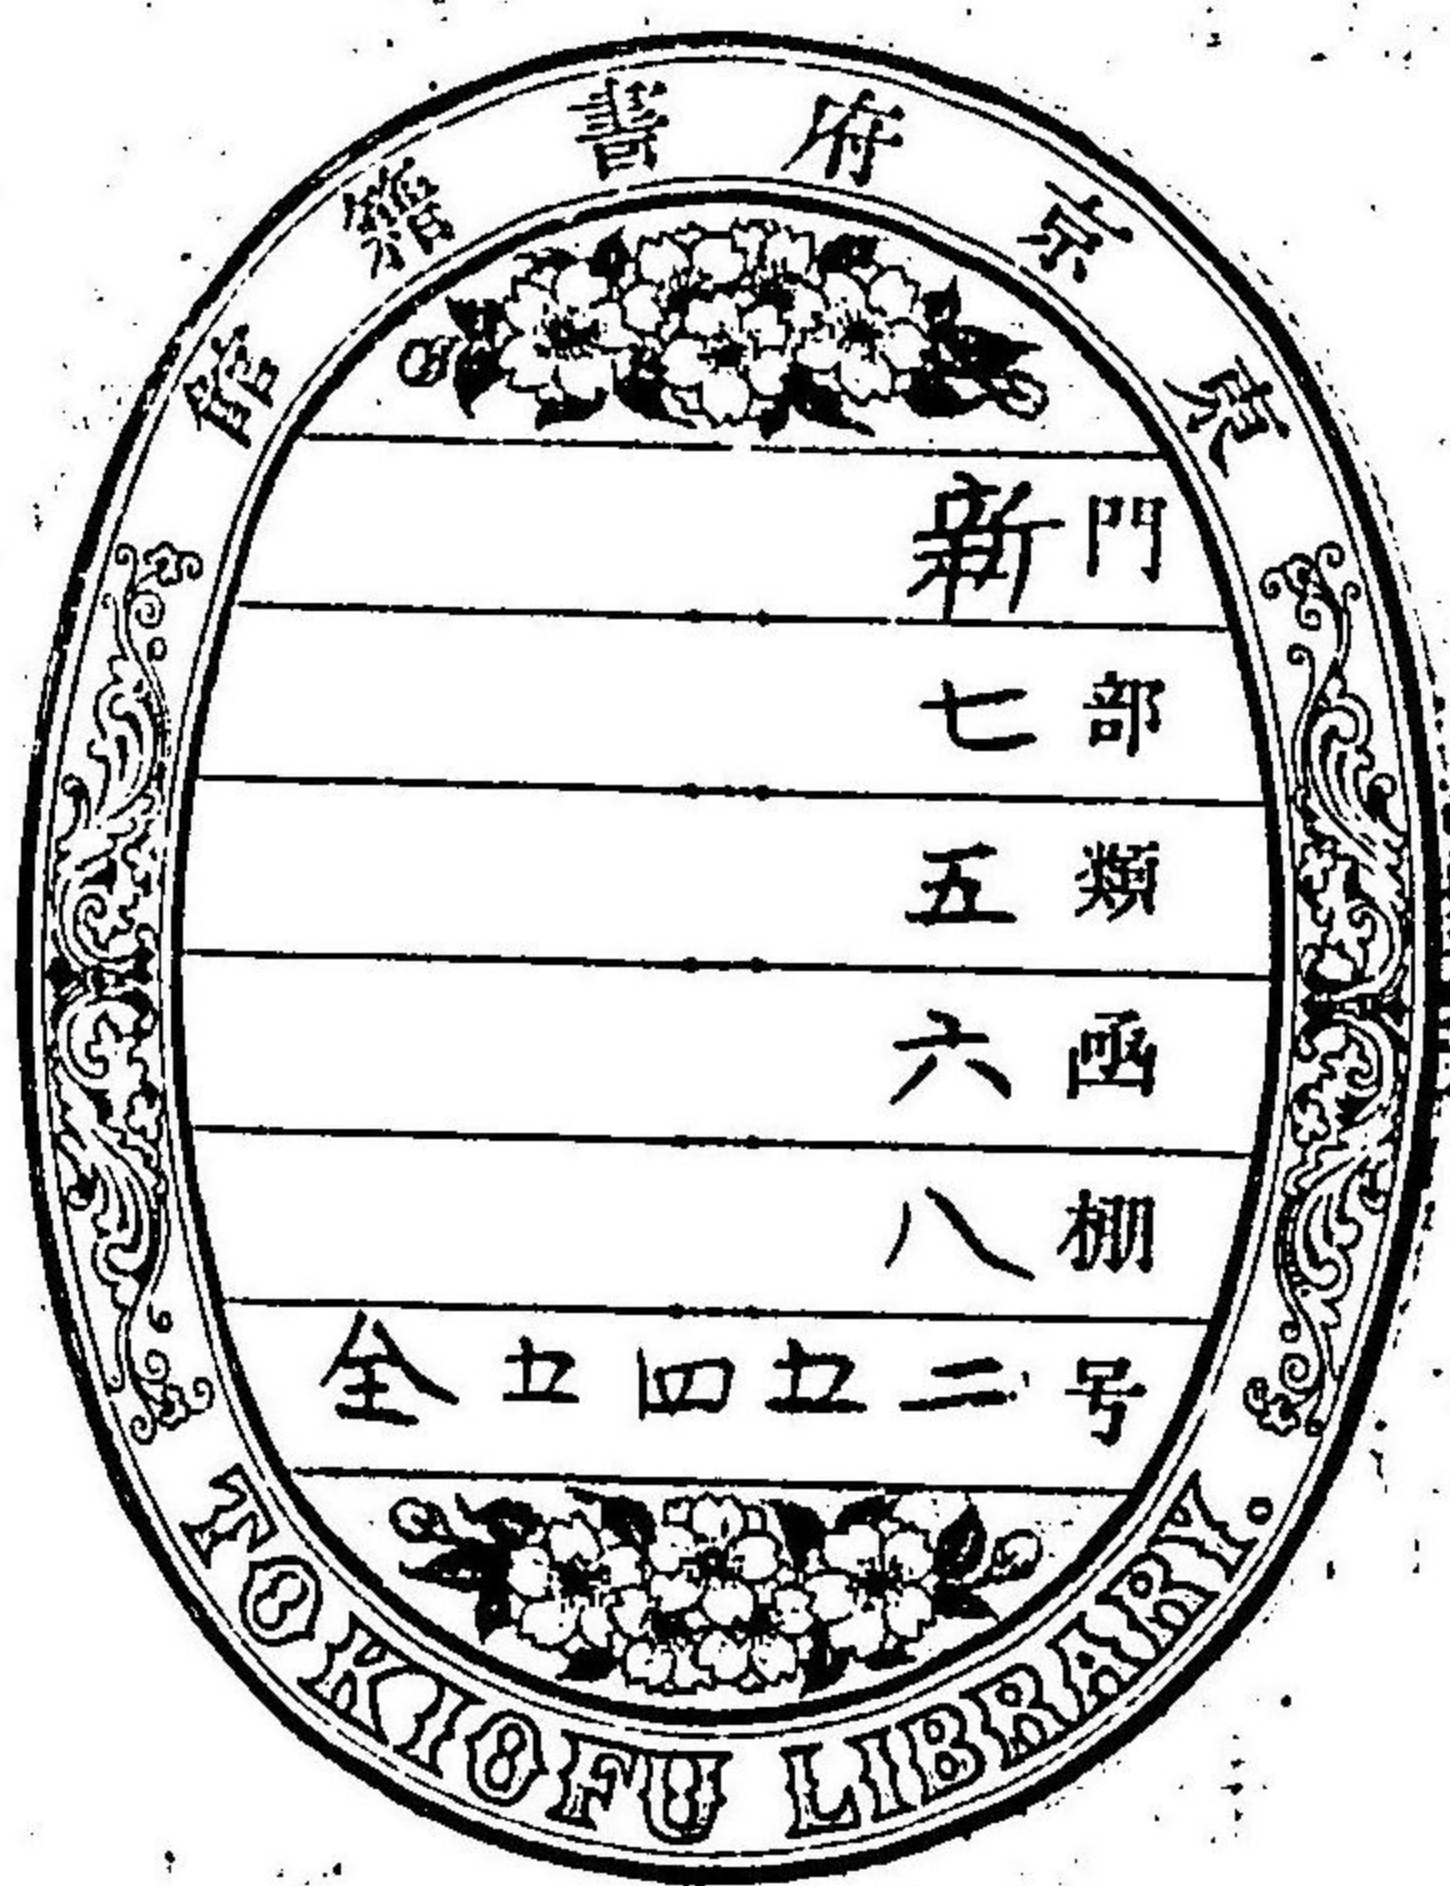 東京府書籍館
門 新
部 七
類 五
函 六
棚 八
号 二五四五全
TOKIOFU LIBRARY.